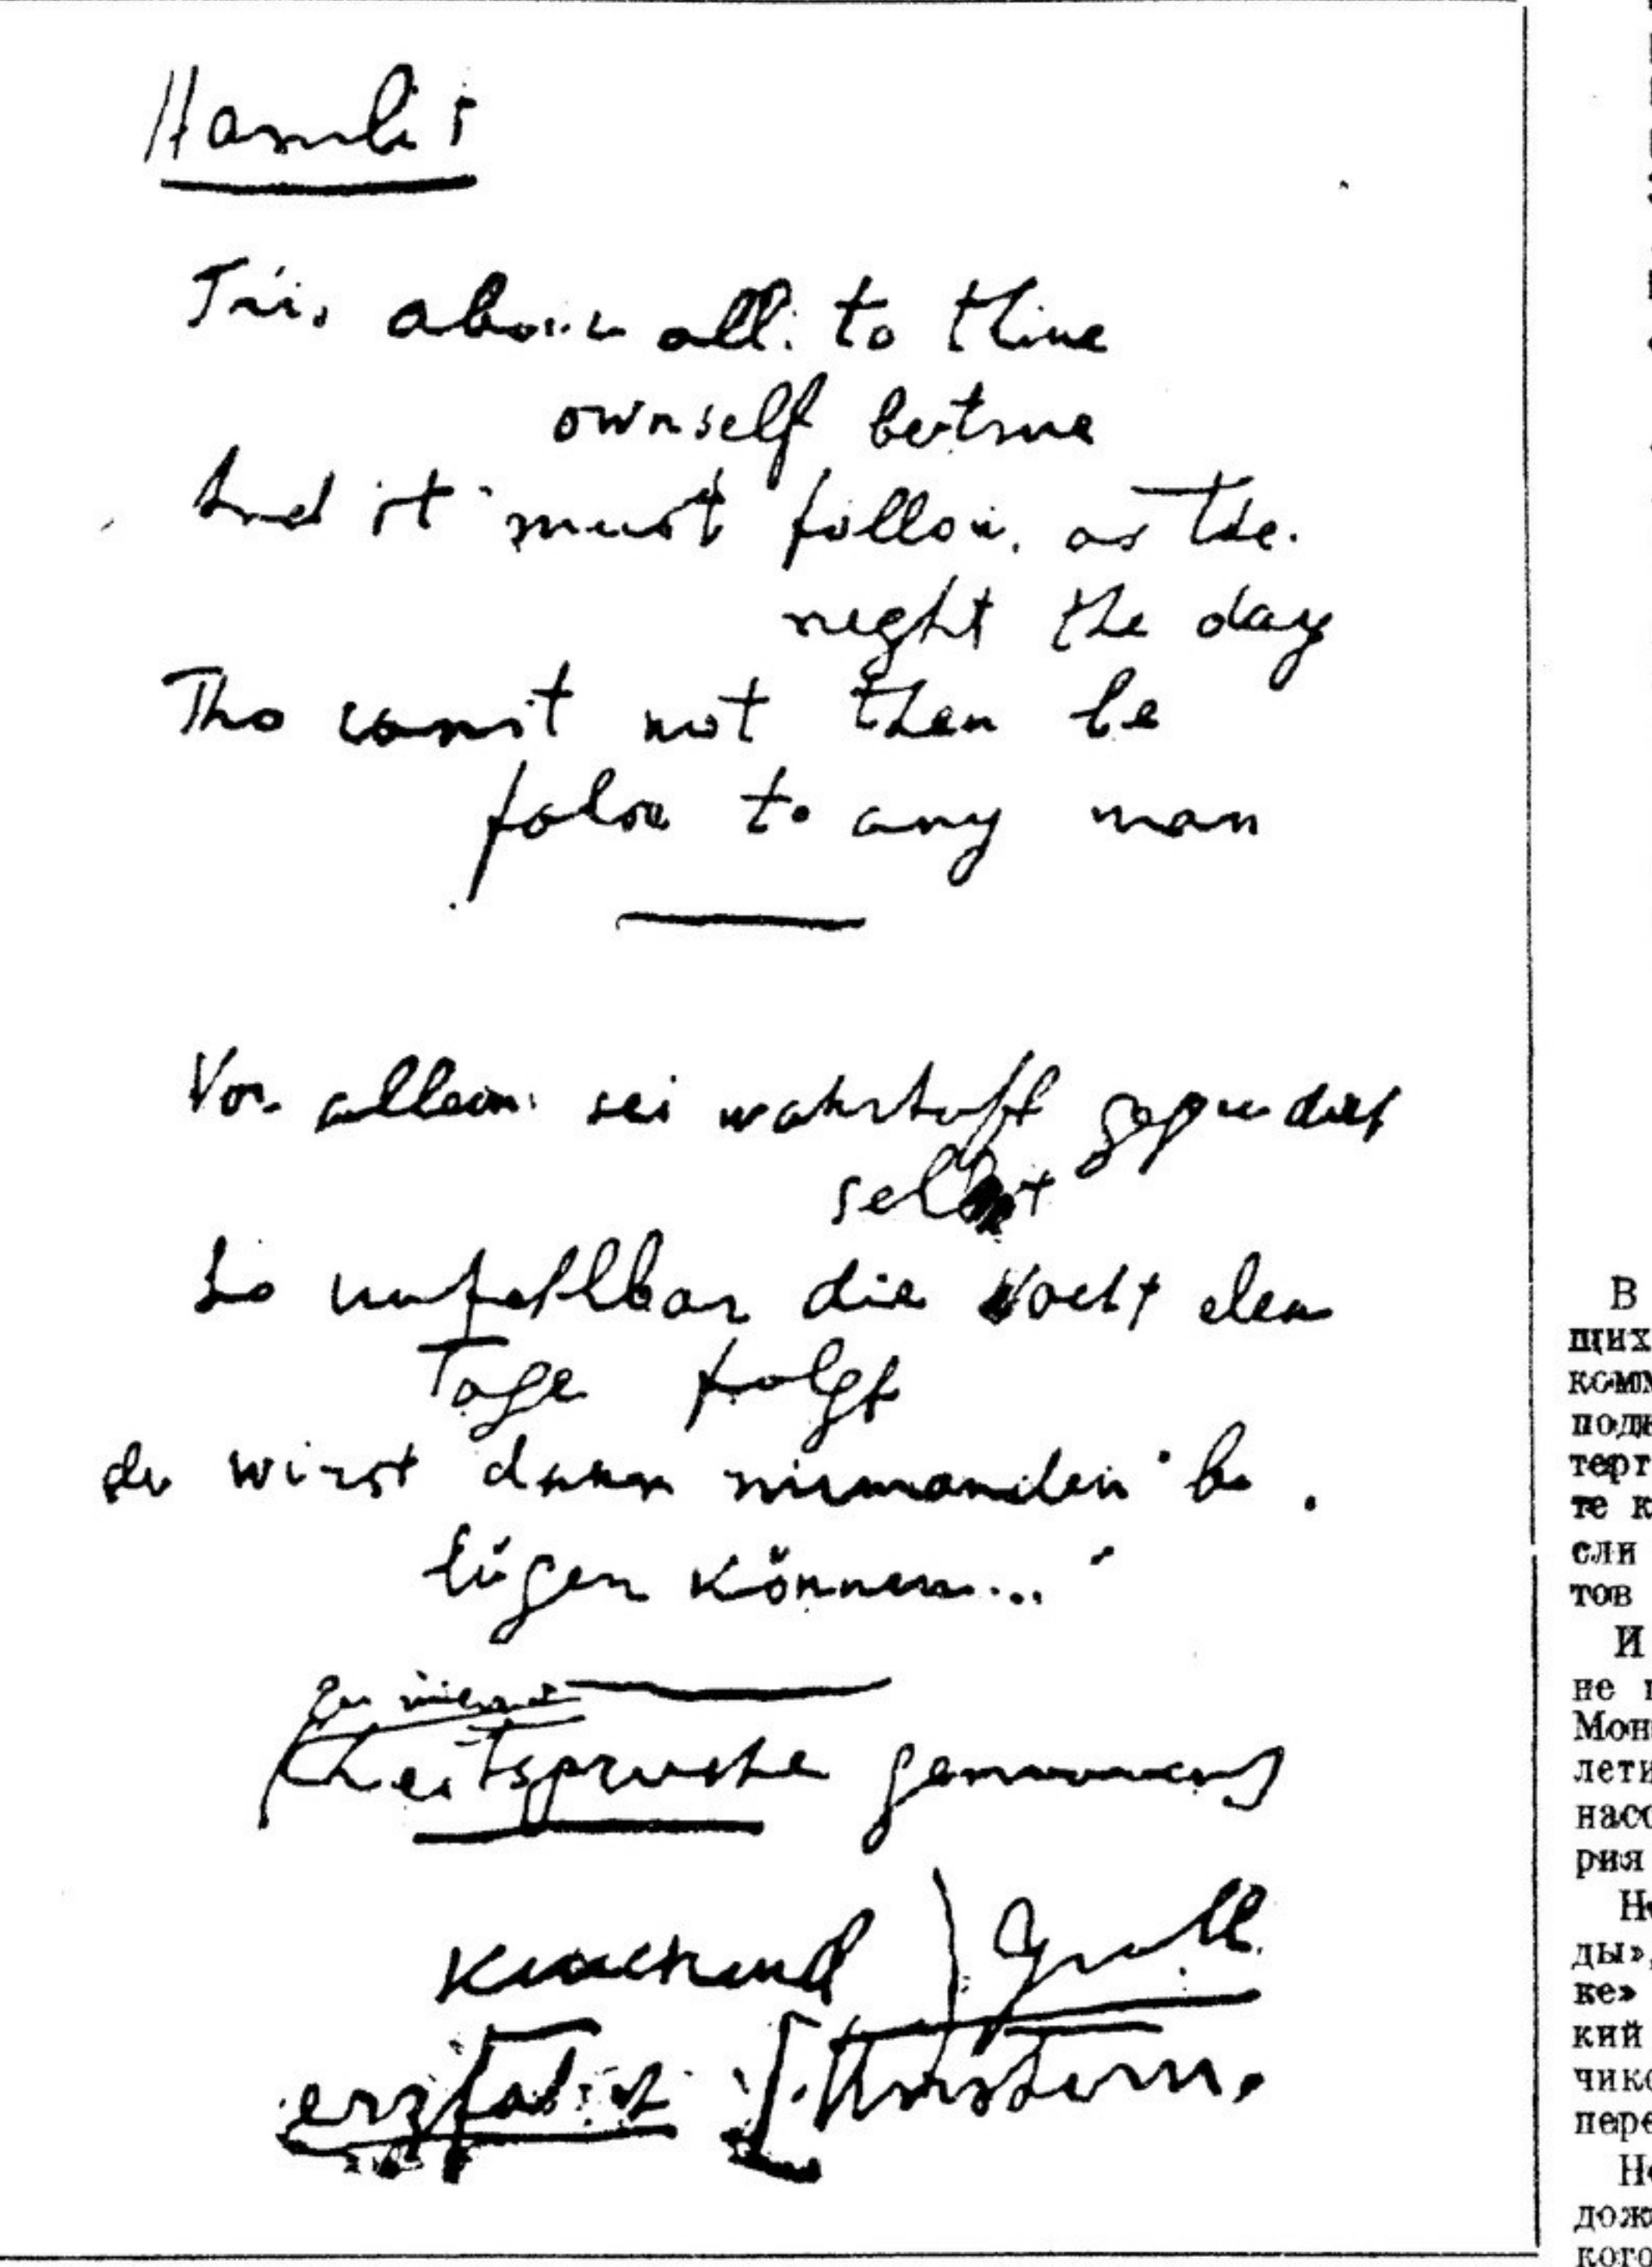 Hamlet
This above all: to thine
ownself be true
And it must follow, as the
night the day
Tho canst not then be
false to any man
Vor allem: sei wahrhaft gegen dich
selbst
So unfehlbar die Nacht dem
Tage folgt
du wirst dann niemanden be
lügen können...
zu
Leitspruche genommen
В
щих
комм
подн
терг
те к
сли
тов
И
не
Мон
лети
насс
рия
Не
ды»,
ке»
кий
чико
пере
Не
дож
кого